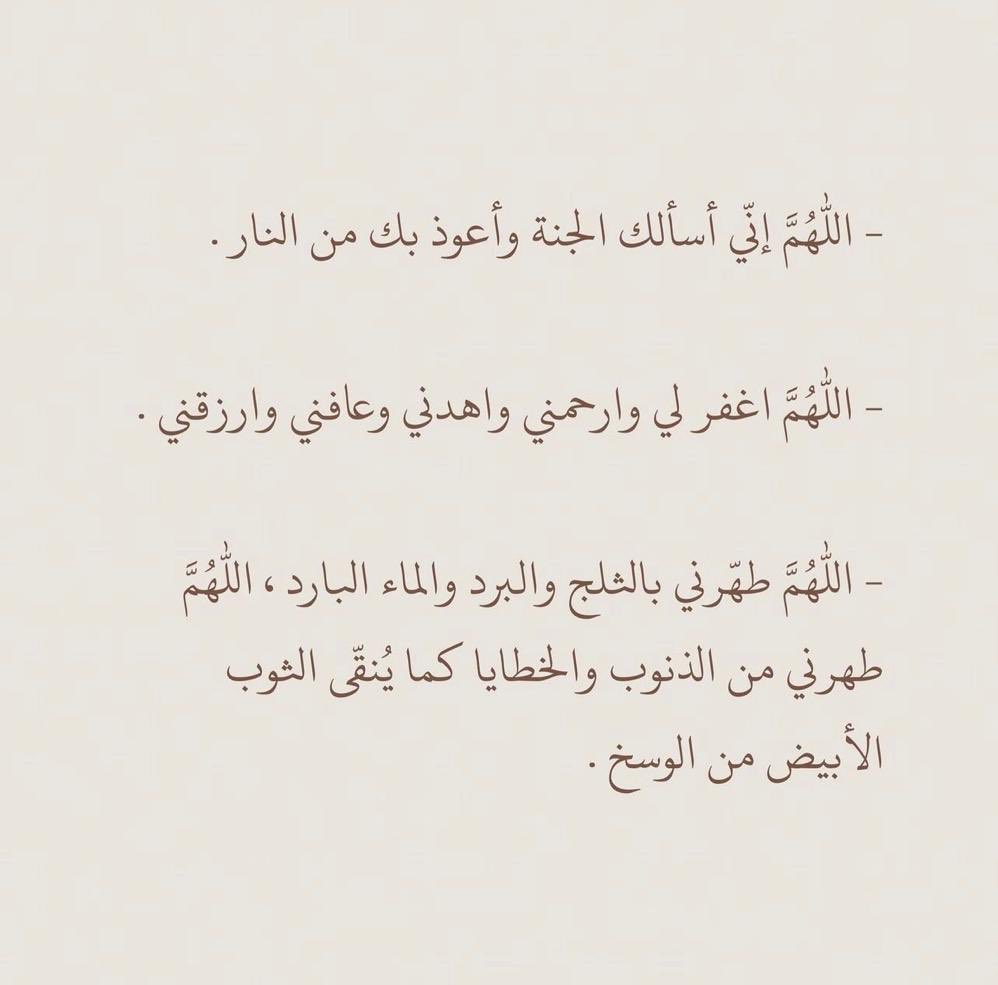 - اللّٰهُمَّ إنّي أسألك الجنة وأعوذ بك من النار .
- اللّٰهُمَّ اغفر لي وارحمني واهدني وعافني وارزقني .
- اللّٰهُمَّ طهّرني بالثلج والبرد والماء البارد ، اللّٰهُمَّ
طهرني من الذنوب والخطايا كما يُنقّى الثوب
الأبيض من الوسخ .